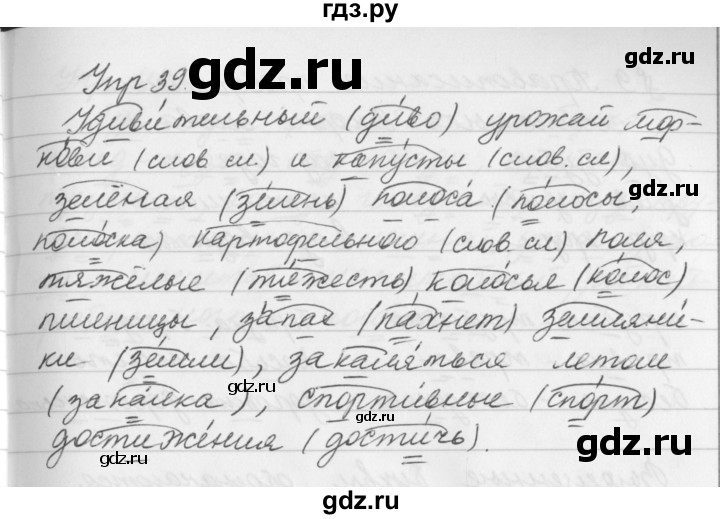 гдз.ру
gdz.ru
Упр 39.
Удивительный (диво) урожай мор-
кови (слов сл.) и капусты (слов. сл),
зелёная (зелень) полоса (полосы,
полоска) картофельного (слов. сл) поля,
тяжёлые (тяжесть) колосья (колос)
пшеницы, запах (пахнет) земляни-
ки (земли), закаляться летом
(закалка), спортивные (спорт)
достижения (достичь).
gdz.ru
gdz.ru
gdz.ru
gdz.ru
gdz.ru
gdz.ru